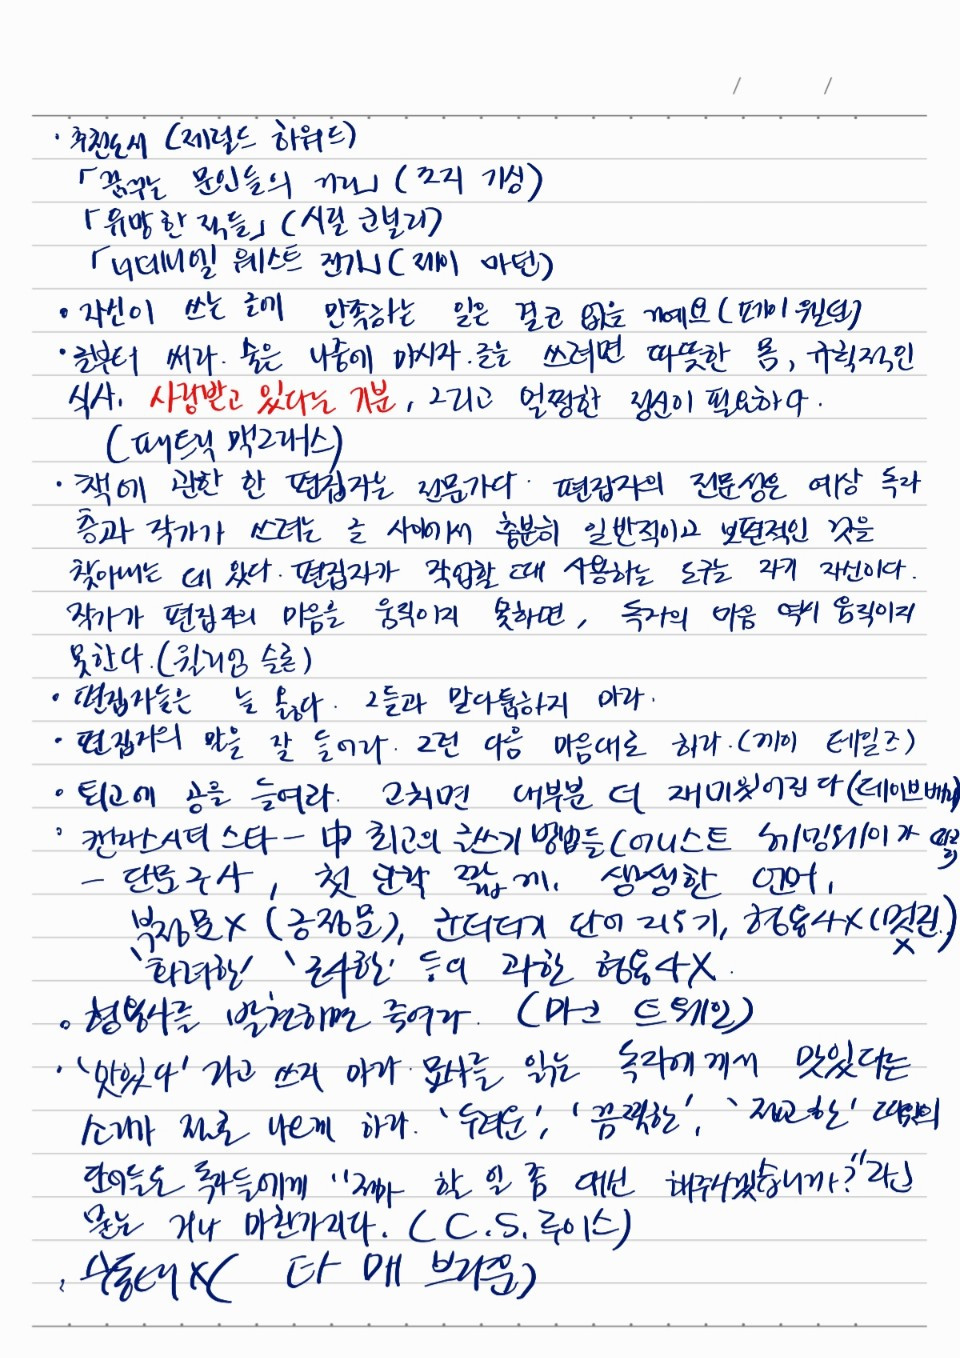 / /
· 추천도서 (제럴드 하워드)
「꿈꾸는 문인들의 거리」 (조지 기싱)
「유망한 적들」 (시릴 코널리)
「너데니얼 웨스트 전기」 (제이 마틴)
· 자신이 쓰는 글에 만족하는 일은 결코 없을 거예요 (페이 웰던)
· 글부터 써라. 술은 나중에 마시자. 글을 쓰려면 따뜻한 몸, 규칙적인
식사, 사랑받고 있다는 기분, 그리고 멀쩡한 정신이 필요하다.
(패트릭 맥그래스)
· 책에 관한 한 편집자는 전문가다. 편집자의 전문성은 예상 독자
층과 작가가 쓰려는 글 사이에서 충분히 일반적이고 보편적인 것을
찾아내는 데 있다. 편집자가 작업할 때 사용하는 도구는 자기 자신이다.
작가가 편집자의 마음을 움직이지 못하면, 독자의 마음 역시 움직이지
못한다. (윌리엄 슬론)
· 편집자들은 늘 옳다. 그들과 말다툼하지 마라.
· 편집자의 말을 잘 들어라. 그런 다음 마음대로 하라. (게이 테일즈)
· 퇴고에 공을 들여라. 고치면 대부분 더 재미있어진다 (데이브 배리)
· 캔자스시티 스타 - 中 최고의 글쓰기 방법들 (어니스트 헤밍웨이가
- 단문구사, 첫 단락 짧게, 생생한 언어,
부정문X (긍정문), 군더더기 단어 지우기, 형용사X (멋진)
X
'화려한' '근사한' 등의 과한 형용사X.
· 형용사를 발견하면 죽여라. (마크 트웨인)
· '맛있다'라고 쓰지 마라. 묘사를 읽는 독자에게서 맛있다는
소리가 절로 나오게 하라. '두려운', '끔찍한', '정교한' 따위의
단어들도 독자들에게 "제가 할 일 좀 대신 해주시겠습니까?"라고
묻는 거나 마찬가지다. (C.S.루이스)
· 수동태X (리타 매 브라운)